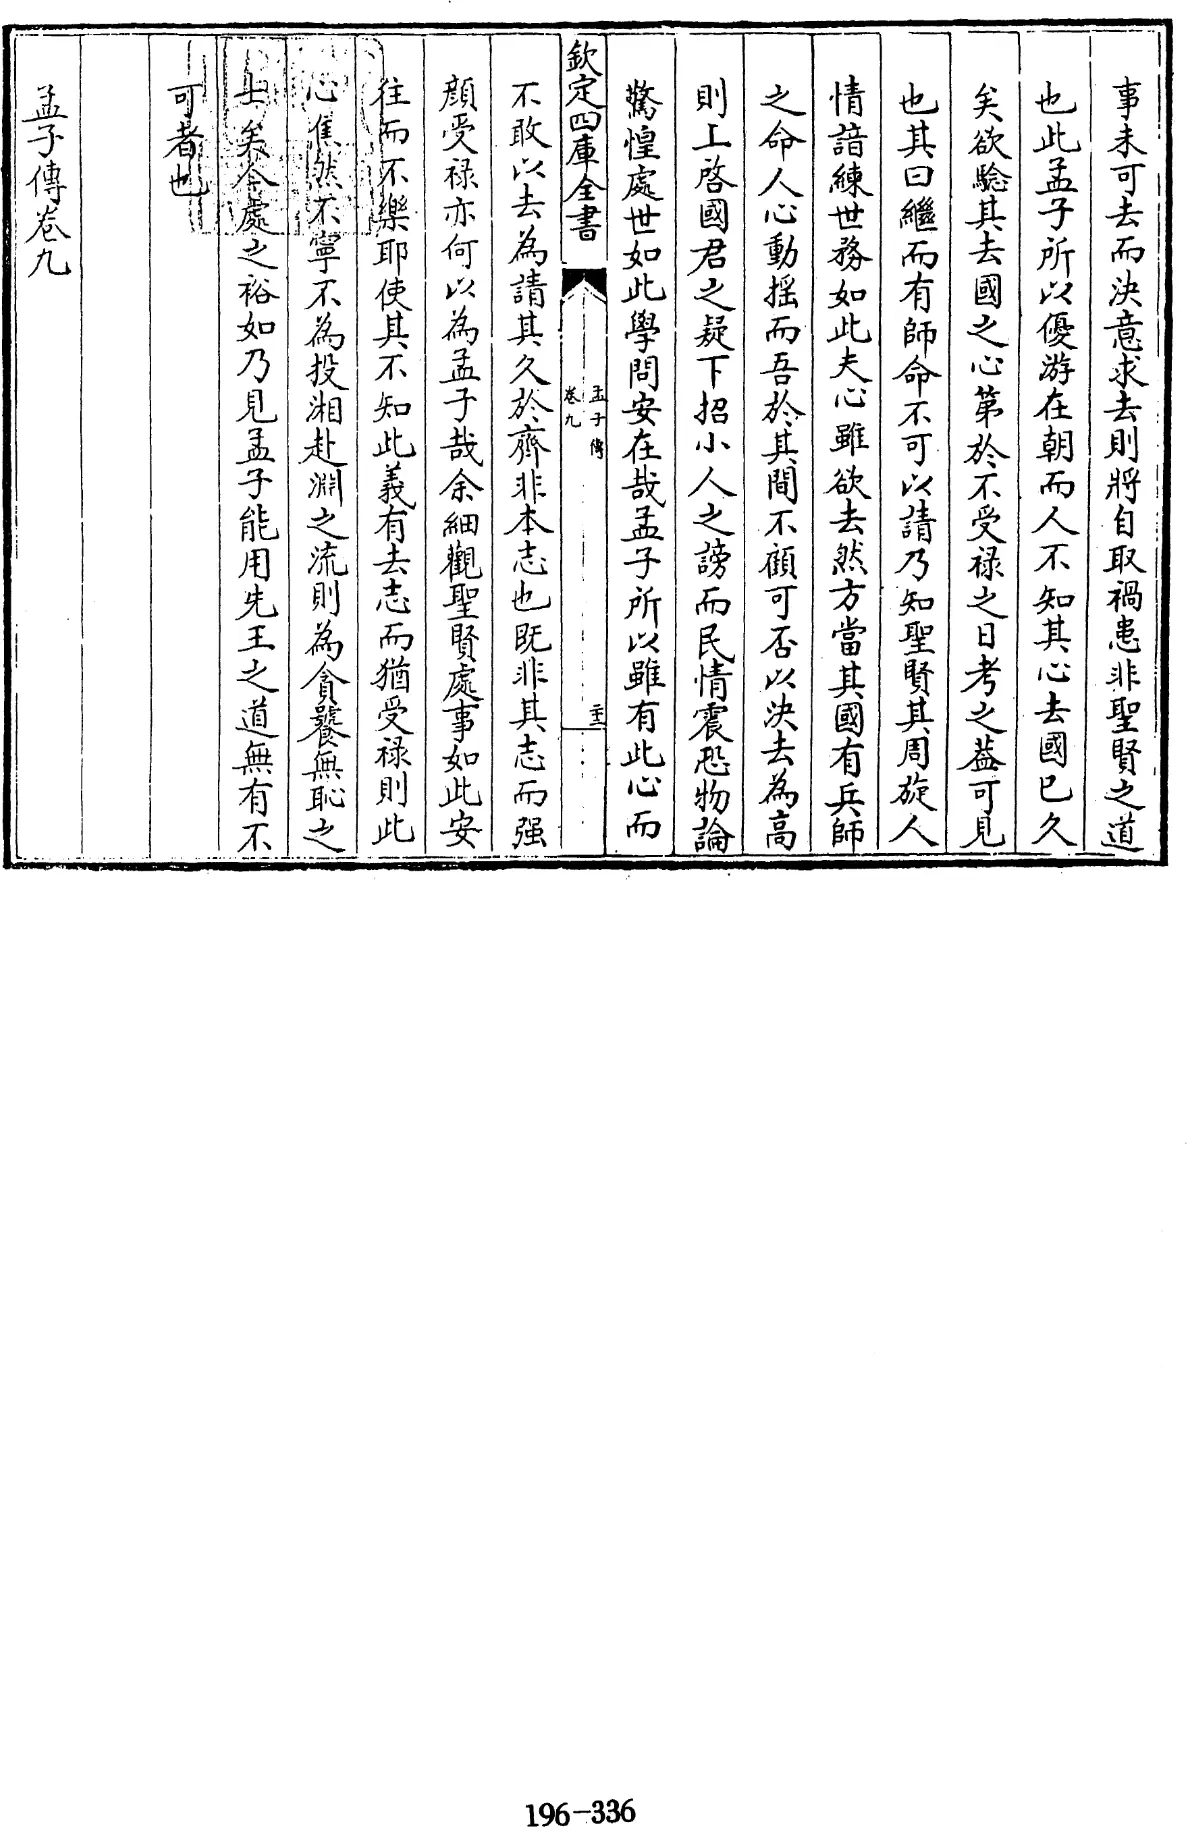 事未可去而決意求去則將自取禍患非聖賢之道
也此孟子所以優游在朝而人不知其心去國已久
矣欲驗其去國之心第於不受祿之日考之葢可見
也其曰繼而有師命不可以請乃知聖賢其周旋人
情諳練世務如此夫心雖欲去然方當其國有兵師
之命人心動揺而吾於其間不顧可否以決去為高
則上啓國君之疑下招小人之謗而民情震恐物論
驚惶處世如此學問安在哉孟子所以雖有此心而
欽定四庫全書
孟子傳
卷九
不敢以去為請其久於齊非本志也既非其志而强
顔受祿亦何以為孟子哉余細觀聖賢處事如此安
往而不樂耶使其不知此義有去志而猶受祿則此
心焦然不寧不為投湘赴淵之流則為貪饕無恥之
士矣今處之裕如乃見孟子能用先王之道無有不
可者也
孟子傳卷九
196-336